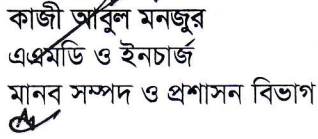 কাজী আবুল মনজুর
এএমডি ও ইনচার্জ
মানব সম্পদ ও প্রশাসন বিভাগ